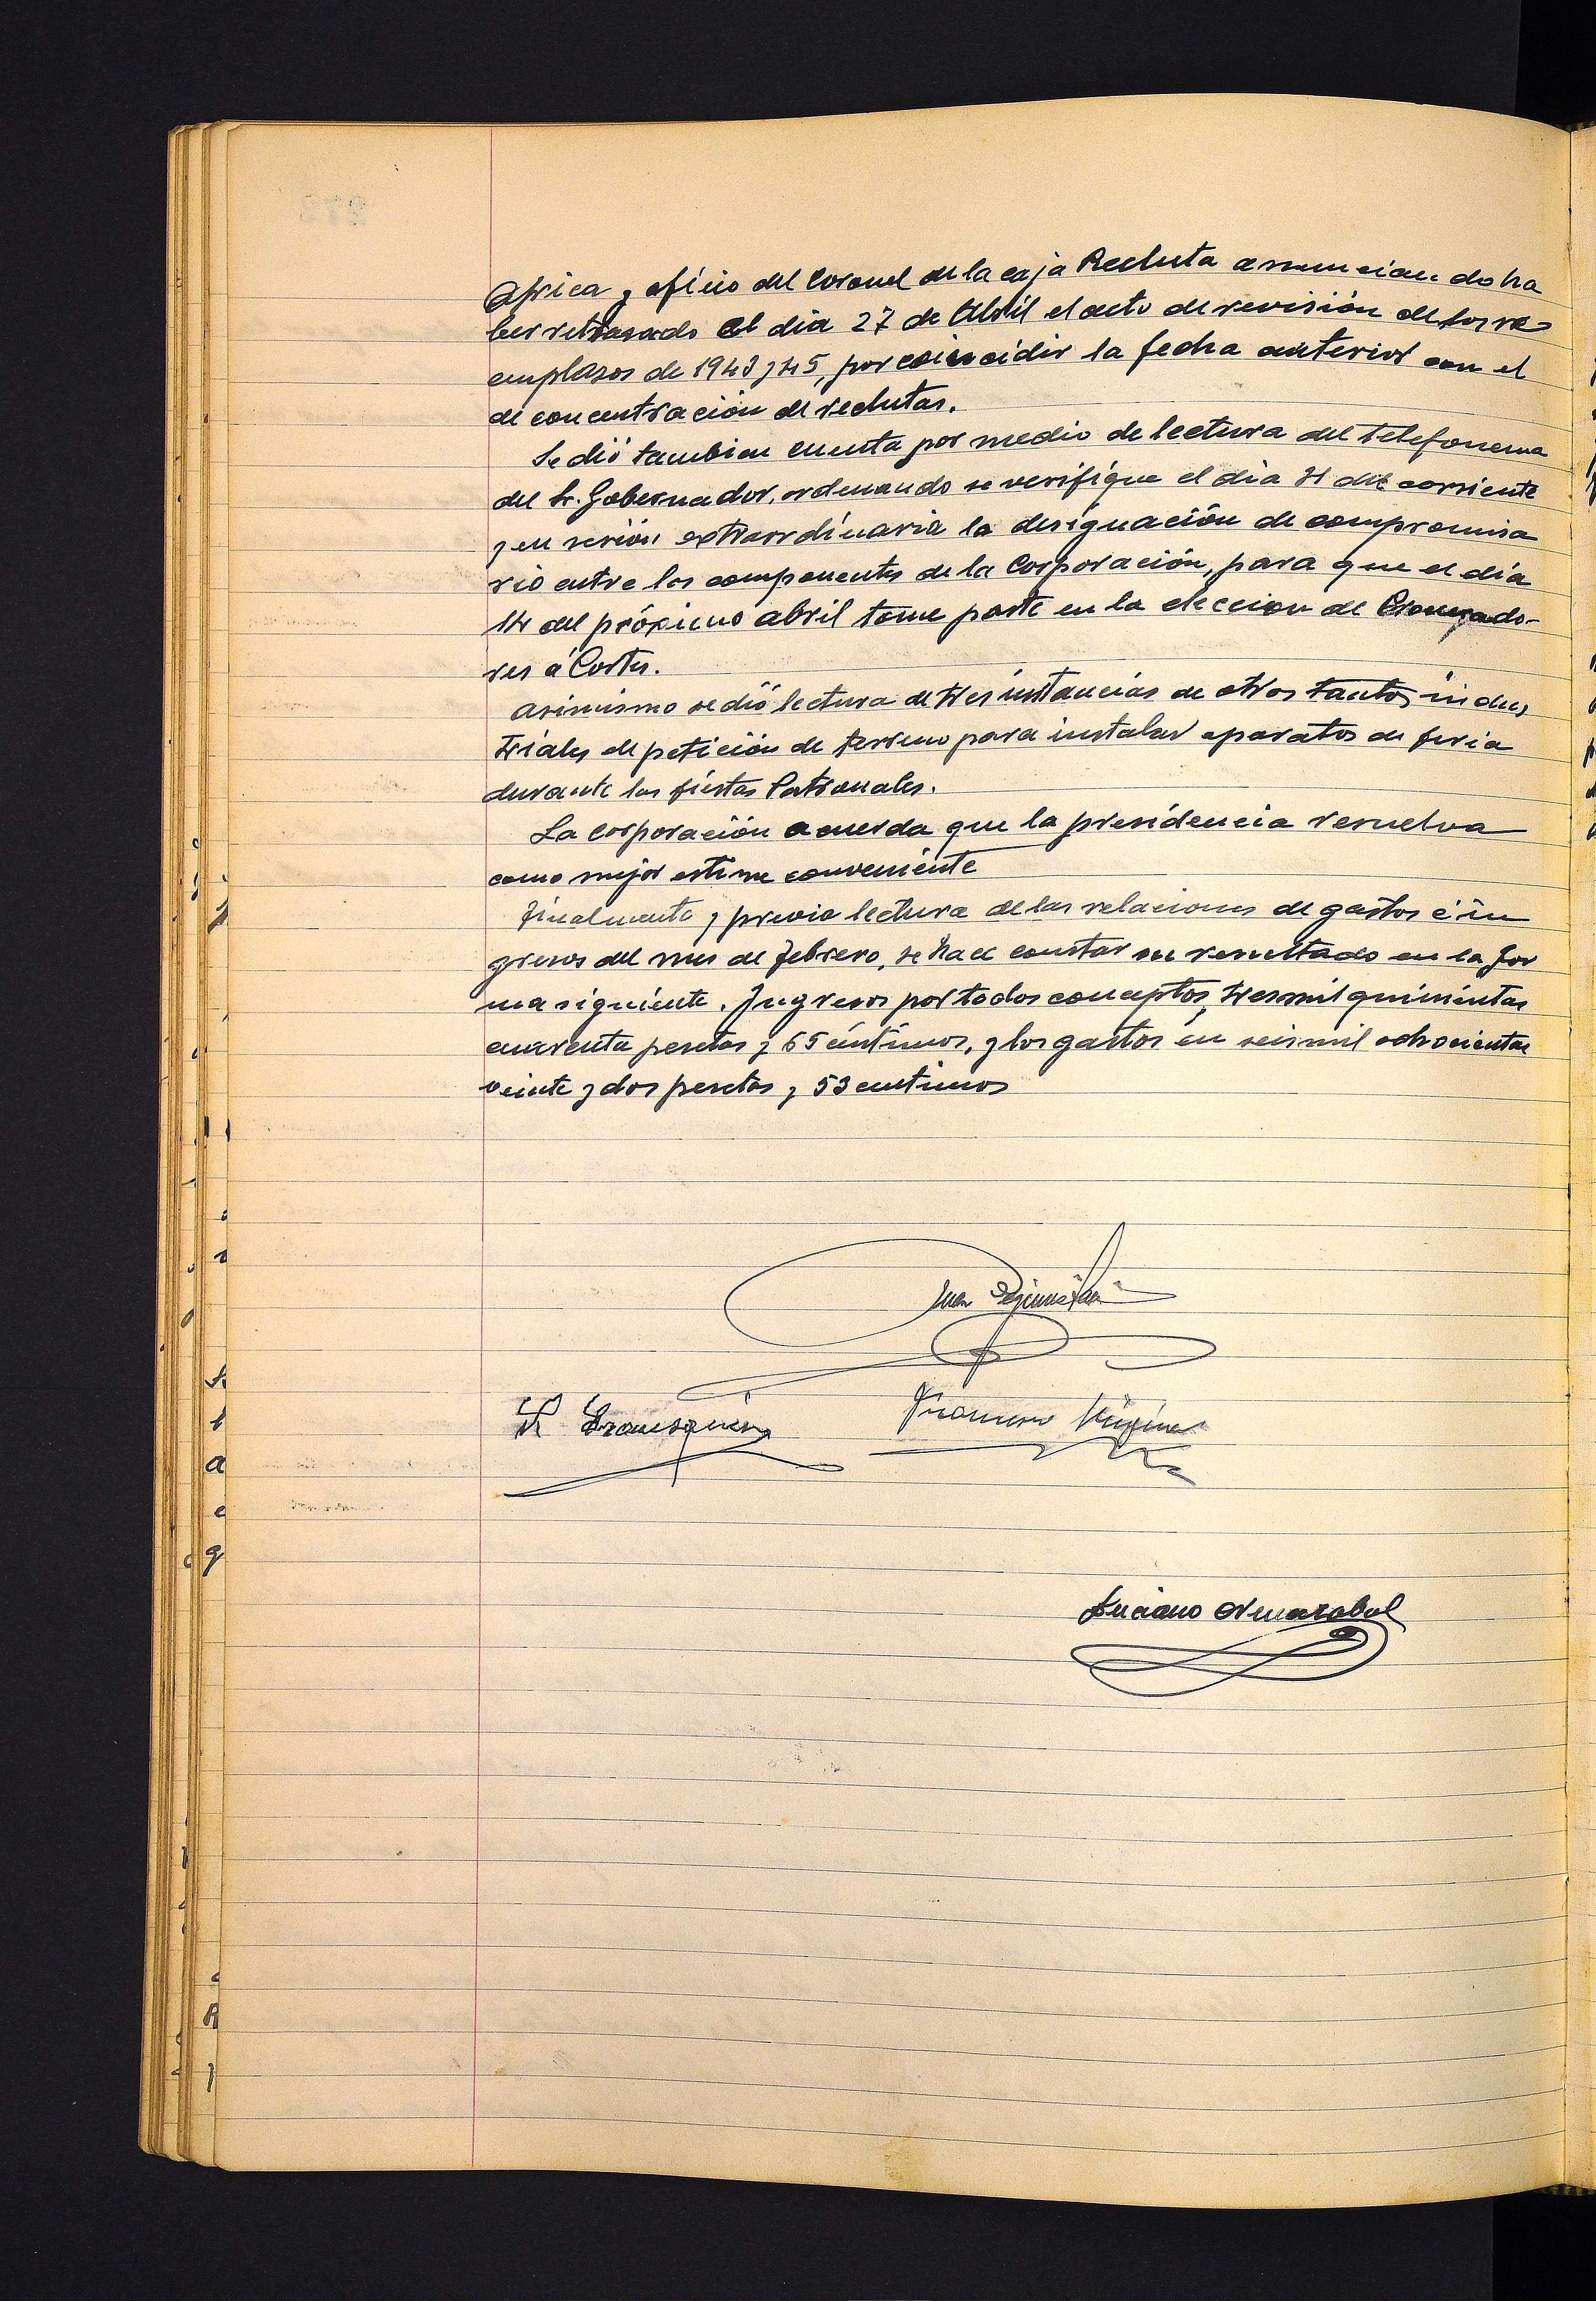 Africa y oficio del Coronel de la caja Recluta anunciando ha
ber retrasado al dia 27 de Abril el acto de revisión de los re
emplazos de 1943 y 45, por coincidir la fecha anterior con el
de concentración de reclutas.
Se dió tambien cuenta por medio de lectura del telefonema
del Sr. Gobernador, ordenando se verifique el dia 31 del corriente
y en sesión extraordinaria la designación de compromisa
rio entre los componentes de la Corporación, para que el día
14 del próximo abril tome parte en la eleccion de
res á Cortes.
asimismo se dió lectura de tres instancias de otros tantos indus
triales de petición de terreno para instalar aparatos de feria
durante las fiestas Patronales.
La corporación acuerda que la presidencia resuelva
como mejor estime conveniente
Finalmente y previa lectura de las relaciones de gastos é in
gresos del mes de febrero, se hace constar su resultado en la for
ma siguiente. Ingresos por todos conceptos, tres mil quinientas
cuarenta pesetas y 65 céntimos, y los gastos en seis mil ochocientas
veinte y dos pesetas y 53 centimos
Juan
Francisco
Luciano